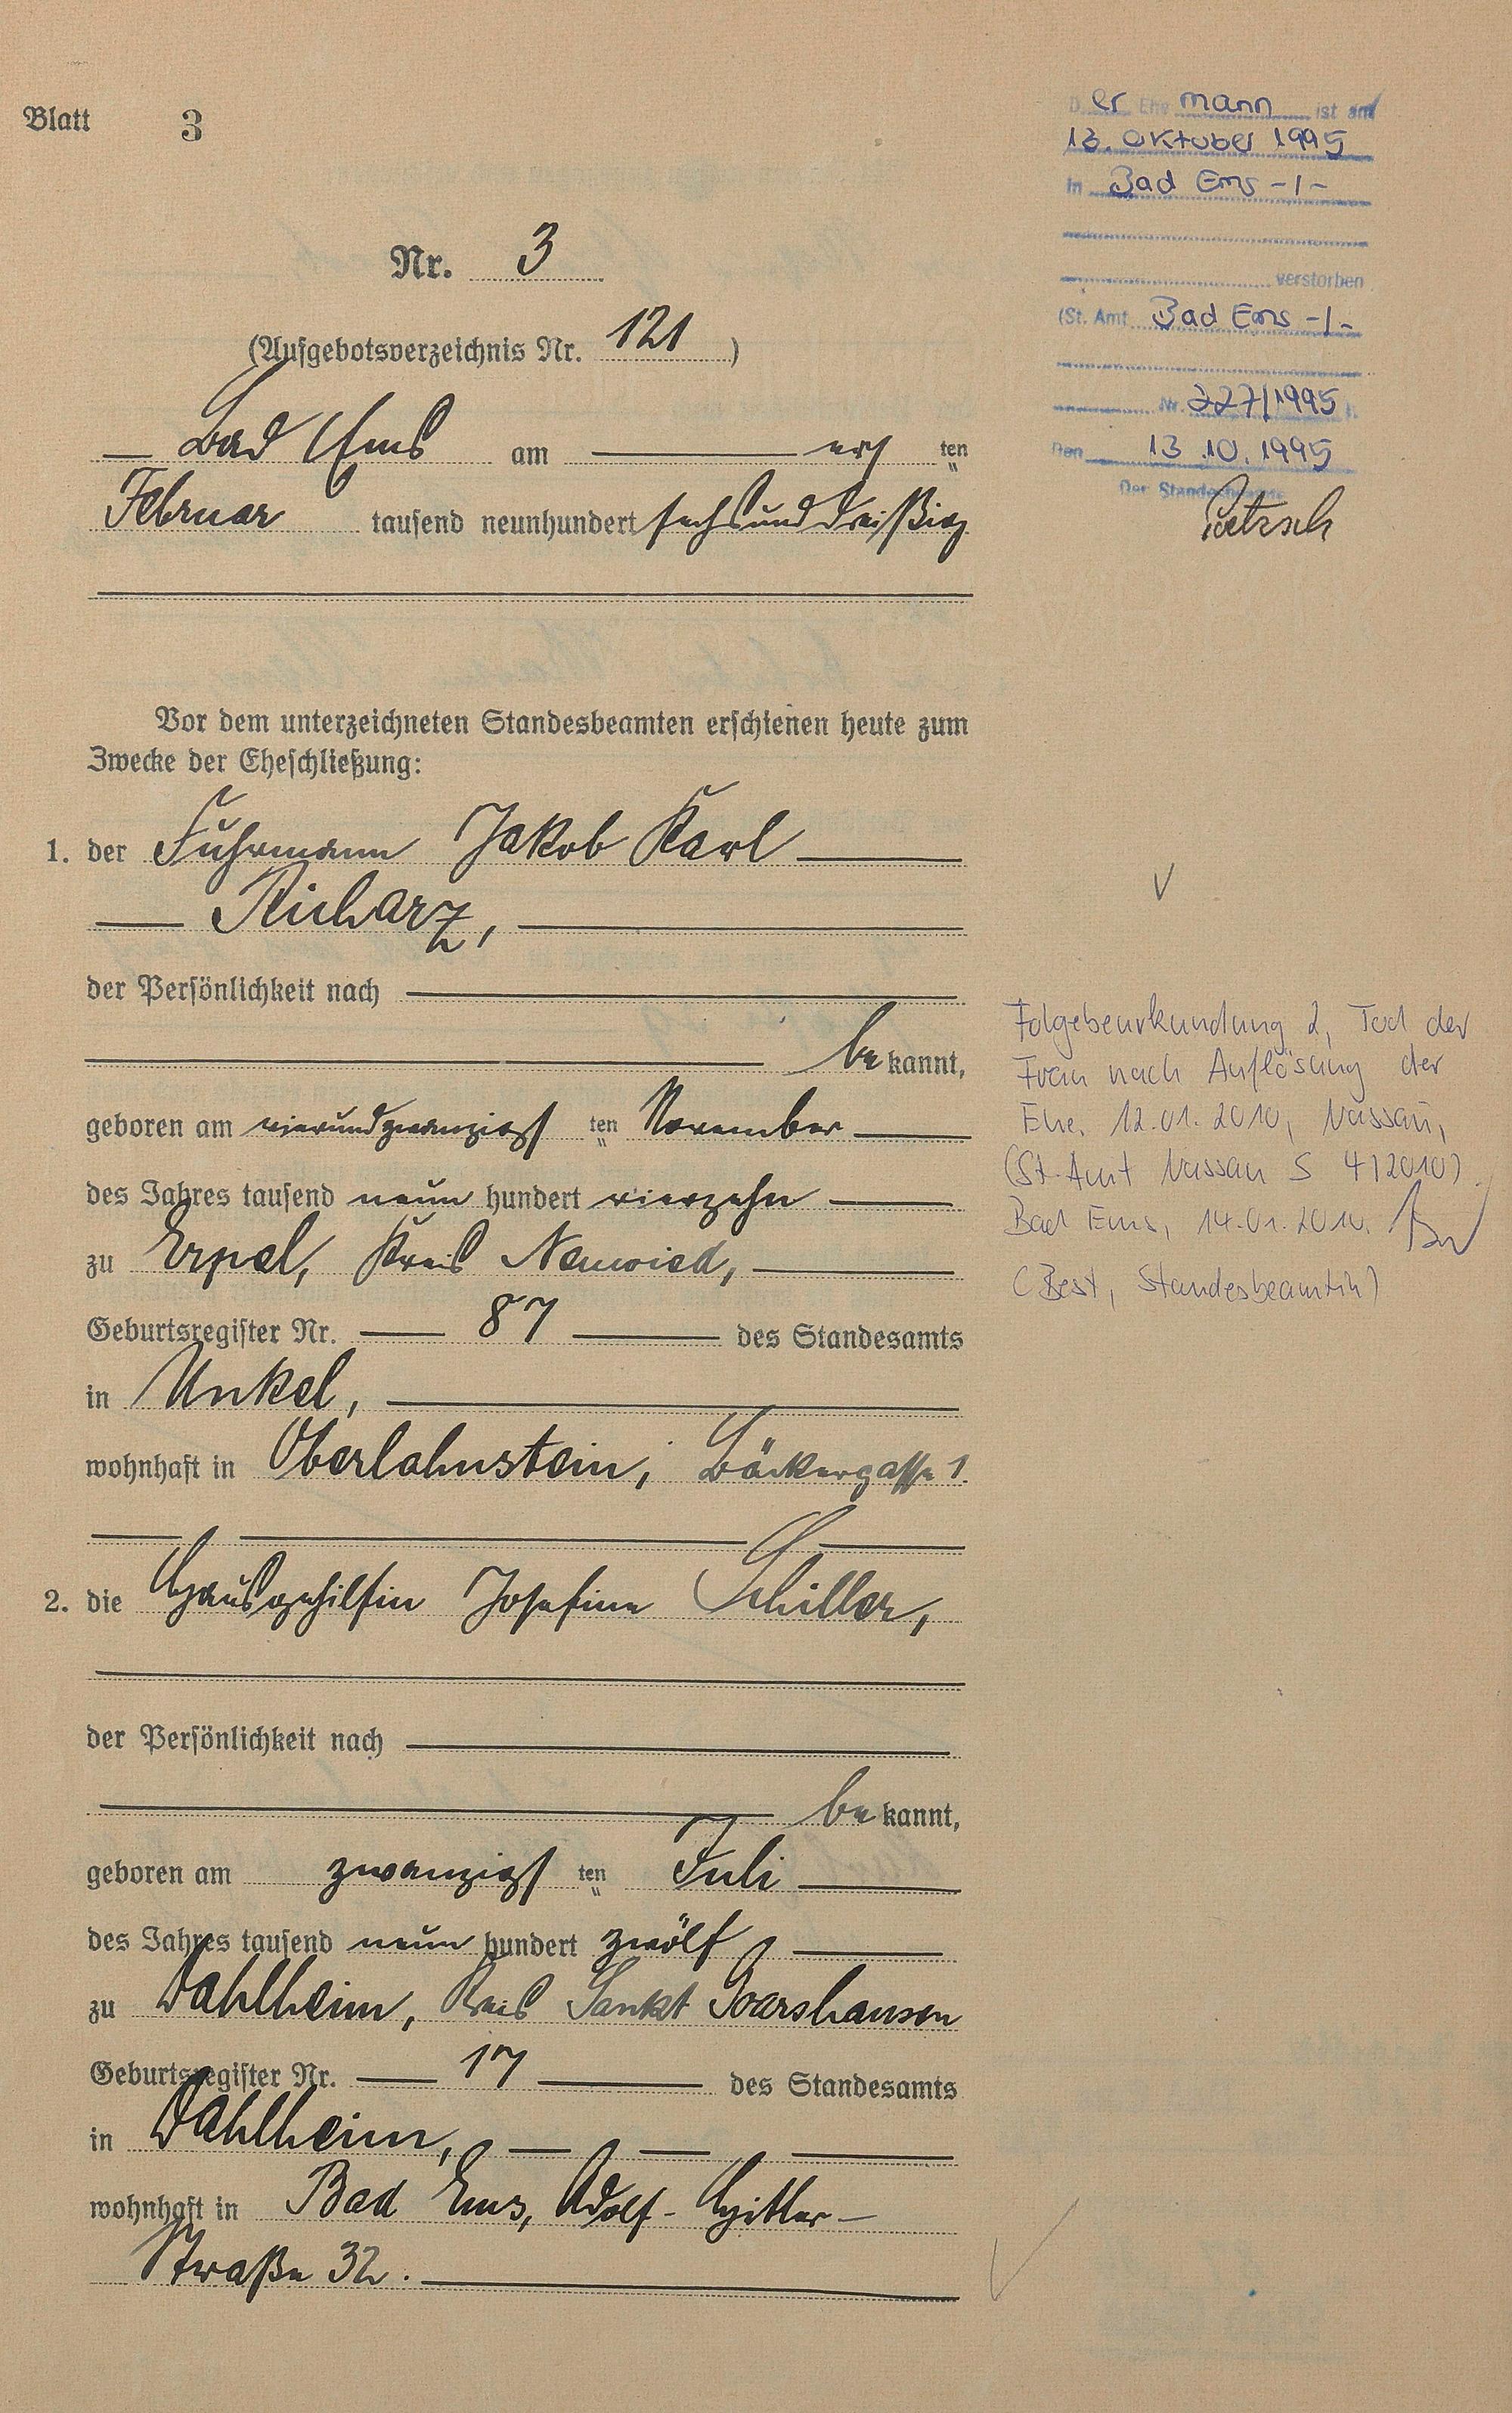 Blatt 3
Nr. 3
(Aufgebotsverzeichnis Nr. 121)
Bad Ems am erſ ten
Februar tauſend neunhundert ſechsunddreißig
Vor dem unterzeichneten Standesbeamten erſchienen heute zum
Zwecke der Eheſchließung:
1. der Fuhrmann Jakob Karl
Richarz,
der Perſönlichkeit nach
be kannt,
geboren am vierundzwanzigſ ten November
des Jahres tauſend neun hundert vierzehn
zu Erpel, Kreis Neuwied,
Geburtsregiſter Nr. 87 des Standesamts
in Unkel,
wohnhaft in Oberlahnstein, Bäckergaſſe 1.
2. die Hausgehilfin Joſefine Schiller,
der Perſönlichkeit nach
be kannt,
geboren am zwanzigſ ten Juli
des Jahres tauſend neun hundert zwölf
zu Dahlheim, Kreis Sankt Goarshausen
Geburtsregiſter Nr. 17 des Standesamts
in Dahlheim,
wohnhaft in Bad Ems, Adolf-Hitler-
Straße 32.
D er Ehe mann ist am
13. Oktober 1995
in Bad Ems -1-
verstorben
(St. Amt Bad Ems -1-
Nr. 227/1995 ).
Den 13.10.1995
Der Standesbeamte
Folgebeurkundung 2, Tod der
Frau nach Auflösung der
Ehe. 12.01.2010, Nassau,
(St-Amt Nassau S 4/2010).
Bad Ems, 14.01.2010.
(Best, Standesbeamtin)